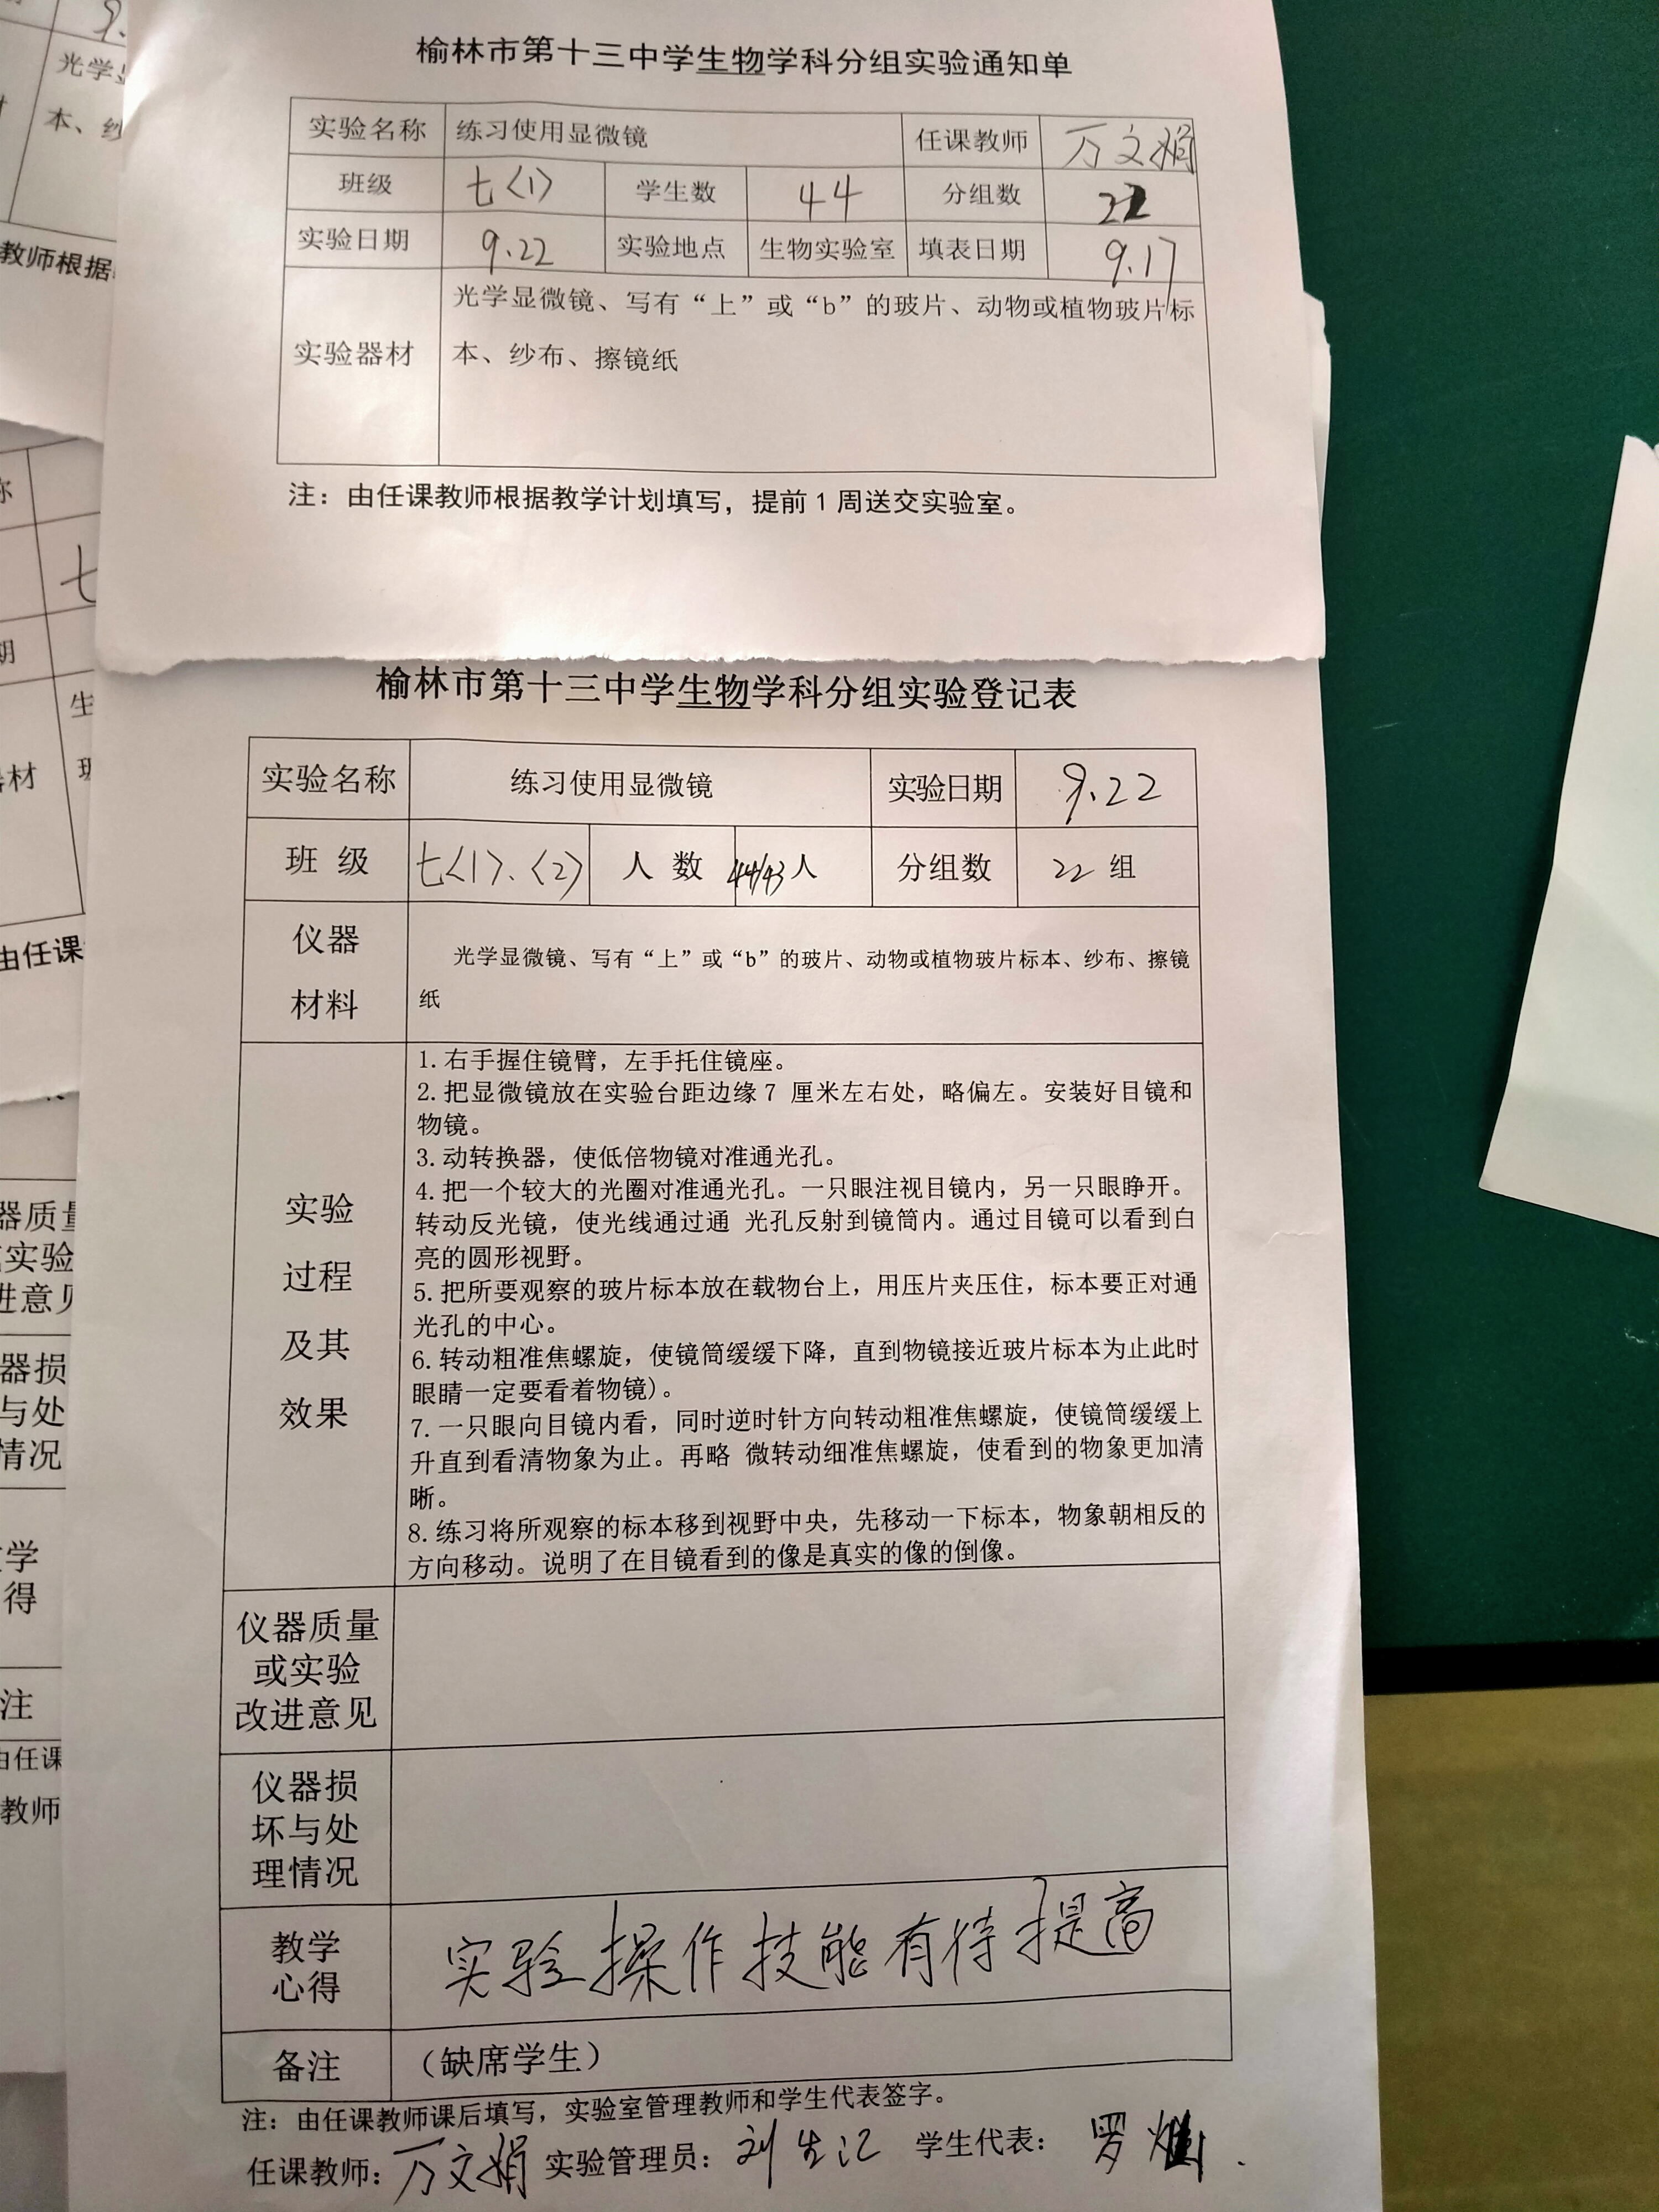 榆林市第十三中学生物学科分组实验通知单
实验名称 练习使用显微镜 任课教师 万文娟
班级 七<1> 学生数 44 分组数 22
实验日期 9.22 实验地点 生物实验室 填表日期 9.17
实验器材 光学显微镜、写有“上”或“b”的玻片、动物或植物玻片标
本、纱布、擦镜纸
注：由任课教师根据教学计划填写，提前1周送交实验室。
榆林市第十三中学生物学科分组实验登记表
实验名称 练习使用显微镜 实验日期 9.22
班 级 七<1>、<2> 人 数 44/43人 分组数 22 组
仪器
材料
光学显微镜、写有“上”或“b”的玻片、动物或植物玻片标本、纱布、擦镜
纸
实验
过程
及其
效果
1.右手握住镜臂，左手托住镜座。
2.把显微镜放在实验台距边缘7 厘米左右处，略偏左。安装好目镜和
物镜。
3.动转换器，使低倍物镜对准通光孔。
4.把一个较大的光圈对准通光孔。一只眼注视目镜内，另一只眼睁开。
转动反光镜，使光线通过通 光孔反射到镜筒内。通过目镜可以看到白
亮的圆形视野。
5.把所要观察的玻片标本放在载物台上，用压片夹压住，标本要正对通
光孔的中心。
6.转动粗准焦螺旋，使镜筒缓缓下降，直到物镜接近玻片标本为止此时
眼睛一定要看着物镜)。
7.一只眼向目镜内看，同时逆时针方向转动粗准焦螺旋，使镜筒缓缓上
升直到看清物象为止。再略 微转动细准焦螺旋，使看到的物象更加清
晰。
8.练习将所观察的标本移到视野中央，先移动一下标本，物象朝相反的
方向移动。说明了在目镜看到的像是真实的像的倒像。
仪器质量
或实验
改进意见
仪器损
坏与处
理情况
教学
心得
实验操作技能有待提高
备注 （缺席学生）
注：由任课教师课后填写，实验室管理教师和学生代表签字。
任课教师：万文娟 实验管理员：刘生汇 学生代表：罗
光学
本、纱
教师根据
称
七
期
生
材
由任课
器质量
或实验
进意见
器损
与处
情况
学
得
注
由任课
教师